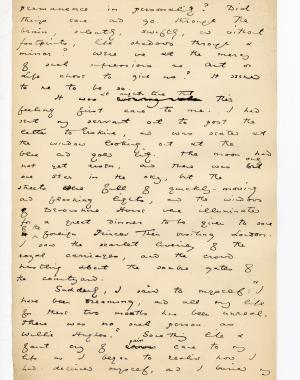 permanence in personality? Did
things come and go through the
brain, silently, swiftly, and without
footprints, like shadows through a
mirror? Were we at the mercy
of such impressions as Art or
Life chose to give us? It seemed
to me to be so.
It was at night-time that this
feeling first came to me. I had
sent my servant out to post the
letter to Erskine, and was seated at
the window looking out at the
blue and gold city. The moon had
not yet risen, and there was but one
star in the sky, but the
streets were full of quickly-moving
and flashing lights, and the windows
of Devonshire House were illuminated
for a great dinner to be given to some
of the foreign Princes then visiting London.
I saw the scarlet liveries of the
royal carriages, and the crowd
hustling about the sombre gates of
the courtyard.
Suddenly, I said to myself: "I
have been dreaming, and all my life
for these two months has been unreal.
There was no such person as
Willie Hughes." Something like a
faint cry of pain came to my
lips as I began to realise how I
had deceived myself, and I buried my